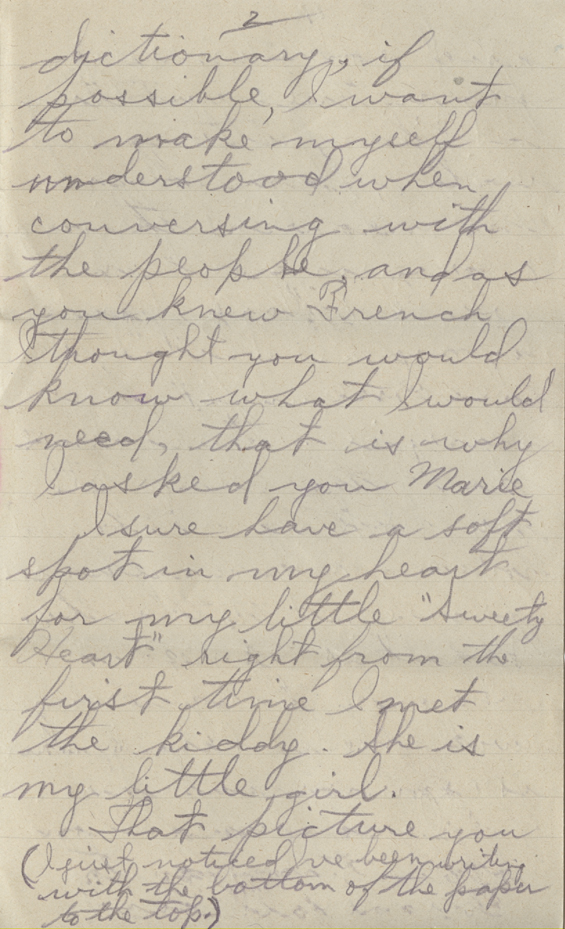 2
dictionary, if
possible, I want
to make myself
understood when
conversing with
the people, and as
you knew French
I thought you would
know what I would
need, that is why
I asked you Marie
I sure have a soft
spot in my heart
for my little "Sweety
Heart" right from the
first time I met
the kiddy. She is
my little girl.
That picture you
(I just noticed I've been writing
with the bottom of the paper
to the top.)